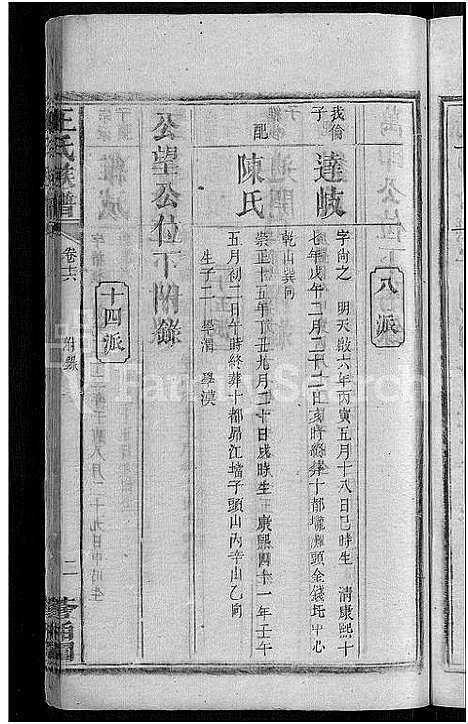 八派
我脩子
達岐
字尚之 明天啟六年丙寅五月十八日巳時生 清康熙十
七年戊午二月二十二日亥時終葬十都壠灘頭金錢坵中心
乾山巽向
配
陳氏
崇正十五年丁丑九月二十日戌時生 康熙四十一年壬午
五月初二日午時終葬十都昴江墻子頭山丙辛山乙向
生子二 學渭 學漢
公望公位下附錄
十四派
王氏族譜
卷十六
附錄
二